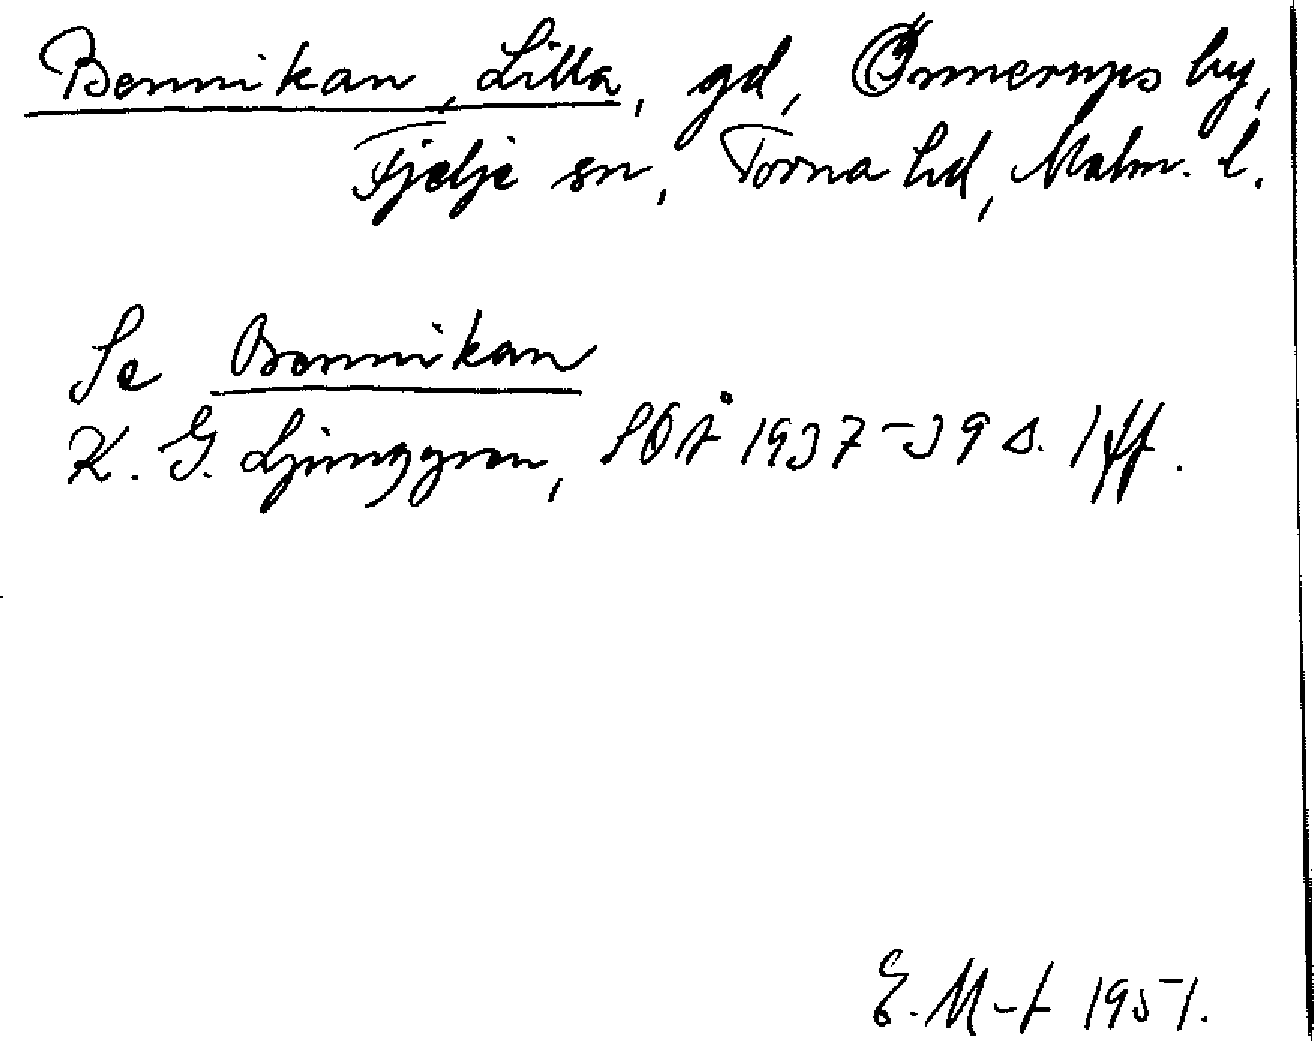 Bennikan, Lilla, gd, Önnerups by,
Fjelje sn, Torna hd, Malm. l.
Se Bennikan
K. G. Ljunggren, SOÅ 1937-39 s. 1 ff.
E. M-t 1951.